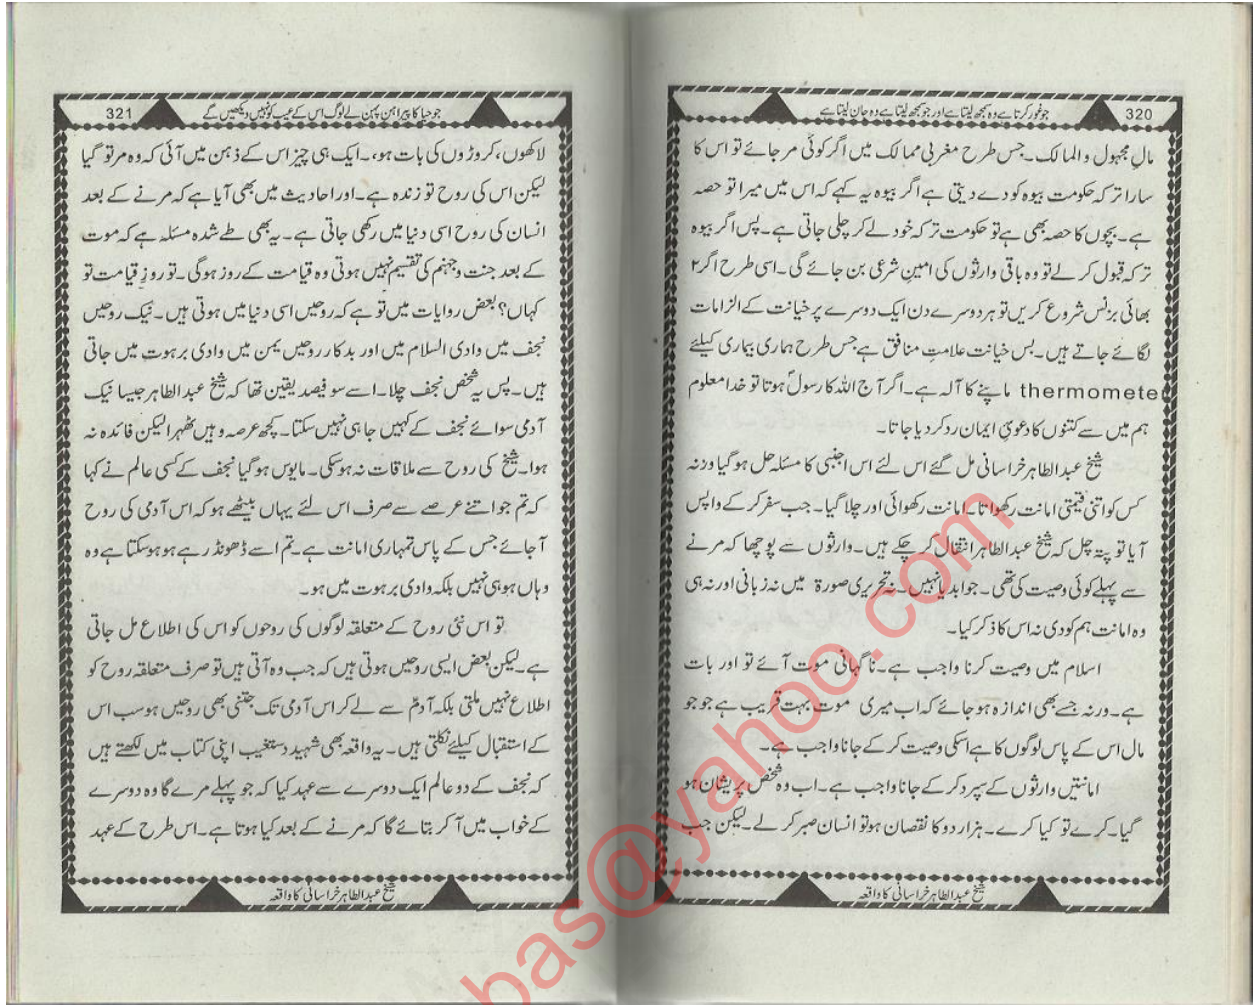 320
جو غور کرتا ہے وہ سمجھ لیتا ہے اور جو سمجھ لیتا ہے وہ جان لیتا ہے
مالِ مجہول و المالک۔ جس طرح مغربی ممالک میں اگر کوئی مر جائے تو اس کا
سارا ترکہ حکومت بیوہ کو دے دیتی ہے اگر بیوہ یہ کہے کہ اس میں میرا تو حصہ
ہے۔ بچوں کا حصہ بھی ہے تو حکومت ترکہ خود لے کر چلی جاتی ہے۔ پس اگر بیوہ
ترکہ قبول کر لے تو وہ باقی وارثوں کی امینِ شرعی بن جائے گی۔ اسی طرح اگر ۲
بھائی بزنس شروع کریں تو ہر دوسرے دن ایک دوسرے پر خیانت کے الزامات
لگائے جاتے ہیں۔ بس خیانت علامتِ منافق ہے جس طرح ہماری بیماری کیلئے
thermometer ماپنے کا آلہ ہے۔ اگر آج اللہ کا رسولؐ ہوتا تو خدا معلوم
ہم میں سے کتنوں کا دعویٰ ایمان رد کر دیا جاتا۔
شیخ عبدالطاہر خراسانی مل گئے اس لئے اس اجنبی کا مسئلہ حل ہو گیا ورنہ
کس کو اتنی قیمتی امانت رکھواتا۔ امانت رکھوائی اور چلا گیا۔ جب سفر کر کے واپس
آیا تو پتہ چل کہ شیخ عبدالطاہر انتقال کر چکے ہیں۔ وارثوں سے پوچھا کہ مرنے
سے پہلے کوئی وصیت کی تھی۔ جواب دیا نہیں۔ نہ تحریری صورۃ میں نہ زبانی اور نہ ہی
وہ امانت ہم کو دی نہ اس کا ذکر کیا۔
اسلام میں وصیت کرنا واجب ہے۔ ناگہانی موت آئے تو اور بات
ہے۔ ورنہ جسے بھی اندازہ ہو جائے کہ اب میری موت بہت قریب ہے جو جو
مال اس کے پاس لوگوں کا ہے اسکی وصیت کر کے جانا واجب ہے۔
امانتیں وارثوں کے سپرد کر کے جانا واجب ہے۔ اب وہ شخص پریشان ہو
گیا۔ کرے تو کیا کرے۔ ہزار دو کا نقصان ہو تو انسان صبر کر لے۔ لیکن جب
شیخ عبدالطاہر خراسانی کا واقعہ
جو حیا کا پیراہن پہن لے لوگ اس کے عیب کو نہیں دیکھیں گے
321
لاکھوں، کروڑوں کی بات ہو،۔ ایک ہی چیز اس کے ذہن میں آئی کہ وہ مر تو گیا
لیکن اس کی روح تو زندہ ہے۔ اور احادیث میں بھی آیا ہے کہ مرنے کے بعد
انسان کی روح اسی دنیا میں رکھی جاتی ہے۔ یہ بھی طے شدہ مسئلہ ہے کہ موت
کے بعد جنت و جہنم کی تقسیم نہیں ہوتی وہ قیامت کے روز ہوگی۔ تو روزِ قیامت تو
کہاں؟ بعض روایات میں تو ہے کہ روحیں اسی دنیا میں ہوتی ہیں۔ نیک روحیں
نجف میں وادی السلام میں اور بدکار روحیں یمن میں وادی برہوت میں جاتی
ہیں۔ پس یہ شخص نجف چلا۔ اسے سو فیصد یقین تھا کہ شیخ عبدالطاہر جیسا نیک
آدمی سوائے نجف کے کہیں جا ہی نہیں سکتا۔ کچھ عرصہ وہیں ٹھہرا لیکن فائدہ نہ
ہوا۔ شیخ کی روح سے ملاقات نہ ہو سکی۔ مایوس ہو گیا نجف کے کسی عالم نے کہا
کہ تم جو اتنے عرصے سے صرف اس لئے یہاں بیٹھے ہو کہ اس آدمی کی روح
آ جائے جس کے پاس تمہاری امانت ہے۔ تم اسے ڈھونڈ رہے ہو ہو سکتا ہے وہ
وہاں ہو ہی نہیں بلکہ وادی برہوت میں ہو۔
تو اس نئی روح کے متعلقہ لوگوں کی روحوں کو اس کی اطلاع مل جاتی
ہے۔ لیکن بعض ایسی روحیں ہوتی ہیں کہ جب وہ آتی ہیں تو صرف متعلقہ روح کو
اطلاع نہیں ملتی بلکہ آدمؑ سے لے کر اس آدمی تک جتنی بھی روحیں ہو سب اس
کے استقبال کیلئے نکلتی ہیں۔ یہ واقعہ بھی شہید دستغیب اپنی کتاب میں لکھتے ہیں
کہ نجف کے دو عالم ایک دوسرے سے عہد کیا کہ جو پہلے مرے گا وہ دوسرے
کے خواب میں آ کر بتائے گا کہ مرنے کے بعد کیا ہوتا ہے۔ اس طرح کے عہد
شیخ عبدالطاہر خراسانی کا واقعہ
bas@yahoo.com